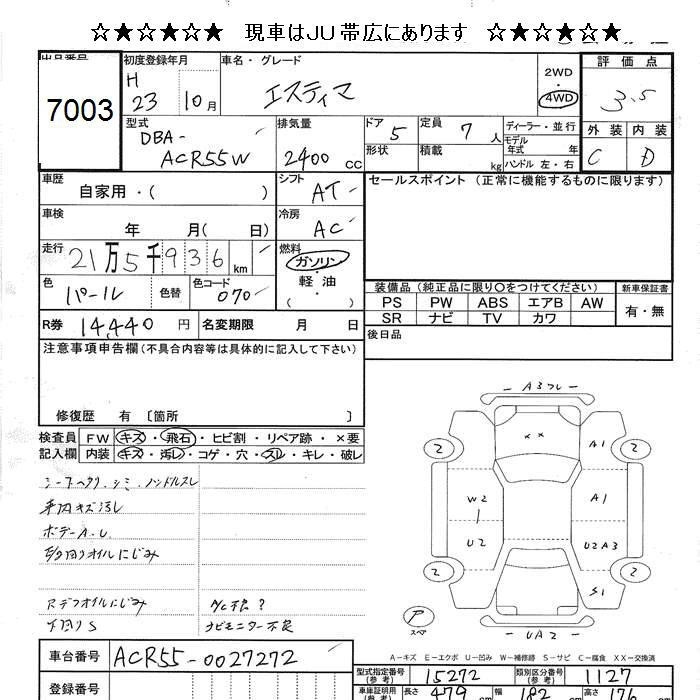 ☆★☆★☆★ 現車はＪＵ帯広にあります ☆★☆★☆★
7003
初度登録年月
H
23 10月
車名・グレード
エスティマ
2WD
・
4WD
評価点
3.5
外装 内装
C D
型式
DBA-
ACR55W
排気量
2400 CC
ドア 5
形状
定員 7 人
積載 kg
ディーラー・並行
モデル
年式 年
ハンドル 左・右
車歴
自家用・( )
シフト
AT
セールスポイント (正常に機能するものに限ります)
車検
年 月( 日)
冷房
AC
走行
21万5千936 km
燃料
ガソリン
・
軽油
( )
色
パール
色替
色コード
070
装備品 (純正品に限り○をつけてください)
新車保証書
PS PW ABS エアB AW
有・無
SR ナビ TV カワ
R券 14,440 円
名変期限 月 日
後日品
注意事項申告欄 (不具合内容等は具体的に記入して下さい)
修復歴 有 〔箇所 〕
検査員 FW キズ・飛石・ヒビ割・リペア跡・×要
記入欄 内装 キズ・汚レ・コゲ・穴・スレ・キレ・破レ
シートヘタリ、シミ、ハンドルスレ
車内キズ汚レ
ボデーA.U.
下回りS
A/C不良?
ナビモニター不良
A3フレ
××
2 A1 2
W2 A1
U2 U2A3
2 S1 2
P
スペア
UA2
A-キズ E-エクボ U-凹み W-補修跡 S-サビ C-腐食 XX-交換済
車台番号 ACR55-0027272
登録番号
型式指定番号
(参考)
15272
類別区分番号
(参考)
1127
車庫証明用
(参考)
長さ 479 cm 幅 182 cm 高さ 176 cm